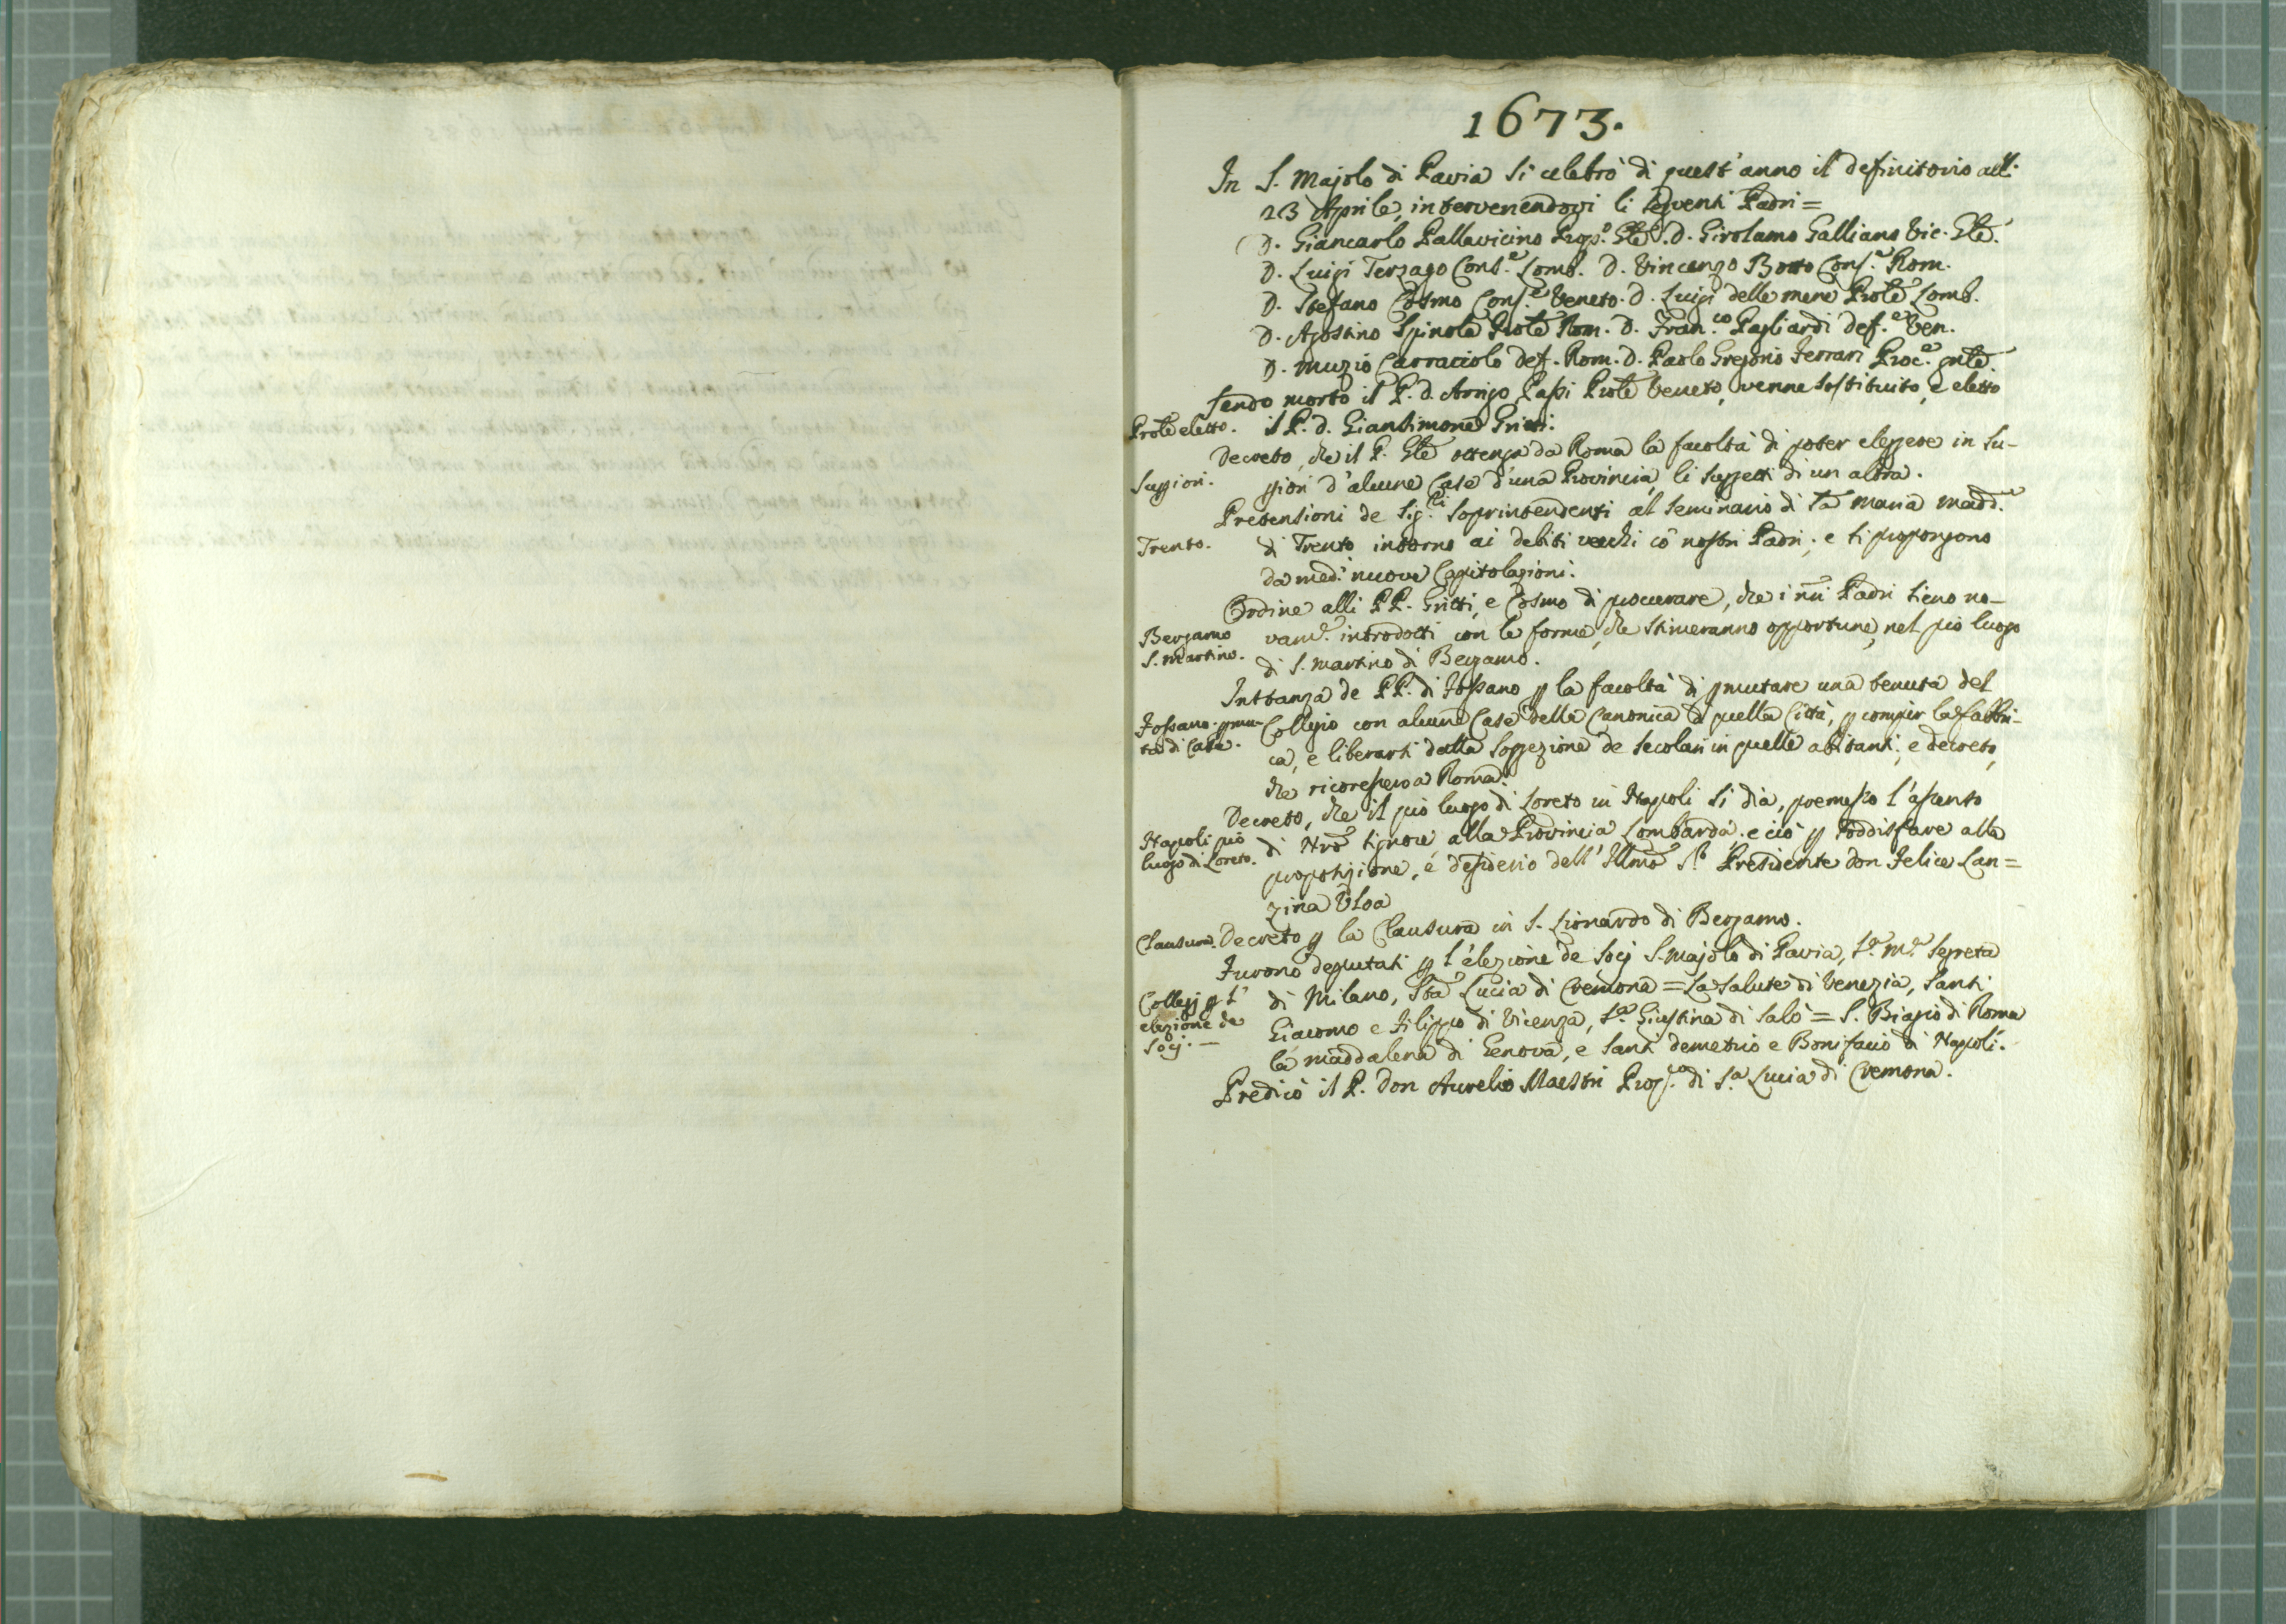 1673.
In S. Majolo di Pavia si celebrò di quest'anno il definitorio all:
23 Aprile, intervenendovi li seguenti Padri =
D. Giancarlo Pallavicino Prep.º Gãle. D. Girolamo Galliano Vic. Gãle.
D. Luigi Terzago Cons.e Lomb. D. Vincenzo Botto Cons.e Rom.
D. Stefano Cosmo Cons.e Veneto. D. Luigi delle mene Prole Lomb.
D. Agostino Spinola Prole Rom. D. Fran.co Pagliardi def.e Ven.
D. Muzio Carraciolo def. Rom. D. Paolo Gregorio Ferrari Proc.e gnle.
Sendo morto il P. d. Arrigo Passi Prole Veneto, venne sostituito, e eletto
Prole eletto. il P. d. Giansimone Gritti.
Decreto, che il P. Gle ottenga da Roma la facoltà di poter eleggere in Su-
Suggiori. giori d'alcune Case d'una Provincia, li suggetti di un altra.
Pretensioni de Sig.ri Soprintendenti al Seminario di Sa Maria Madd.
Trento. di Trento intorno ai debiti vecchi cò nostri Padri; e si propongono
da med.i nuove Capitolazioni.
Ordine alli PP. Gritti, e Cosmo di procurare, che i nri Padri sieno no-
Bergamo S. Martino. vam.e introdotti con le forme, che stimeranno opportune, nel pio luogo
di S. Martino di Bergamo.
Instanza de PP. di Fossano p la facoltà di pmutare una tenuta del
Fossano. pmu- Collegio con alcune Case della Canonica di quella Città, p compir la fabbri-
ta di Casa. ca, e liberarsi dalla soggezione de secolari in quelle abitanti; e decreto,
che ricoressero a Roma.
Decreto, che il pio luogo di Loreto in Napoli si dia, premesso l'assento
Napoli pio luogo di Loreto. di Nro Signore alla Provincia Lombarda; e ciò p soddisfare alla
proposizione, e desiderio dell'Illmo Sr. Presidente don Felice Lan=
zina Uloa
Clausura. Decreto p la Clausura in S. Lionardo di Bergamo.
Furono deputati p l'elezione de Socj S. Majolo di Pavia, S.a M.a Segreta
Collegj p l' di Milano, Sta Lucia di Cremona = La Salute di Venezia, Santi
elezione de Giacomo e Filippo di Vicenza, S.a Giustina di Salò = S. Biagio di Roma
Socj. — la Maddalena di Genova, e Santi Demetrio e Bonifacio di Napoli.
Predicò il P. Don Aurelio Maestri Prep.to di S.a Lucia di Cremona.